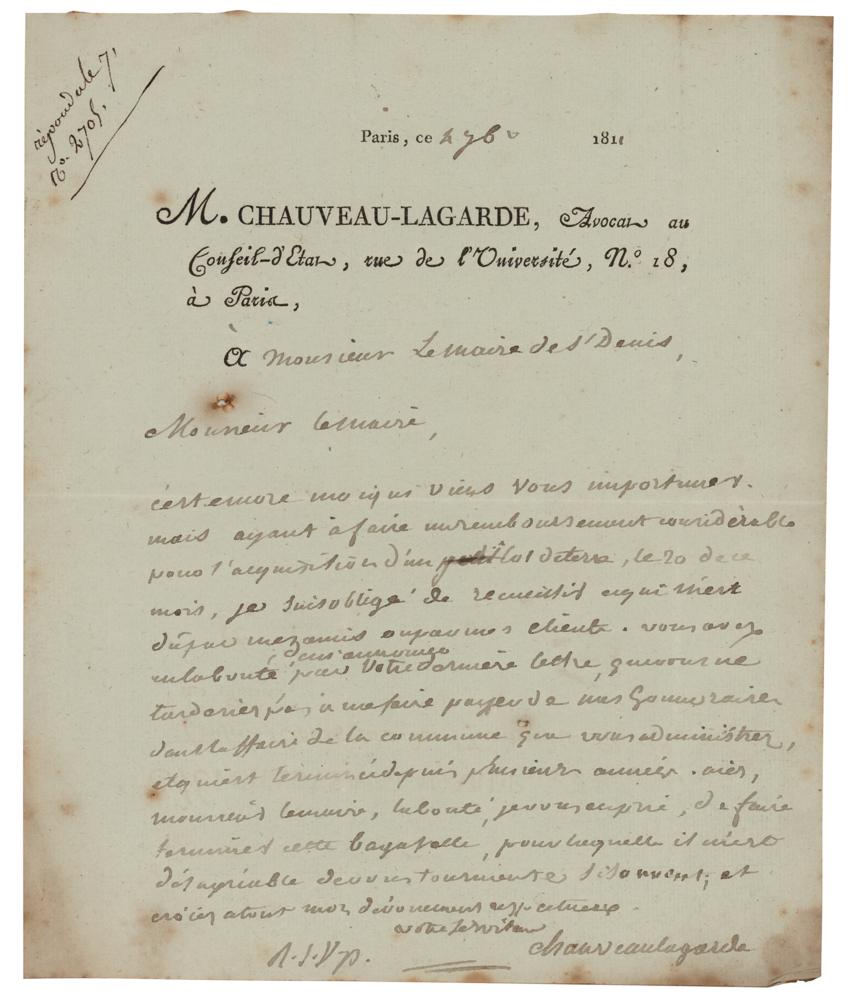 répondu le 7,
N.o 2705.
Paris, ce 2 9b 1811
M. CHAUVEAU-LAGARDE, Avocat au
Conseil-d'Etat, rue de l'Université, N.o 18,
à Paris,
A Monsieur Lemaire de St Denis,
Monsieur lemaire,
c'est encore moi qui viens vous importuner.
mais ayant à faire un remboursement considérable
pour l'acquisition d'un petit lot de terre, le 20 de ce
mois, je suis obligé de recueillir ce qui m'est
dû par mes amis ou par mes clients. vous avez
eu la bonté, de m'annoncer par votre dernière lettre, que vous ne
tarderiez pas à me faire payer de mes honoraires
dans l'affaire de la commune que vous administrez,
et qui est terminée depuis plusieurs années. aiez,
monsieur lemaire, la bonté, je vous en prie, de faire
terminer cette bagatelle, pour laquelle il m'est
désagréable de vous tourmenter si souvent; et
croiez à tout mon dévouement respectueux.
votre serviteur
chauveaulagarde
R.S.V.p.